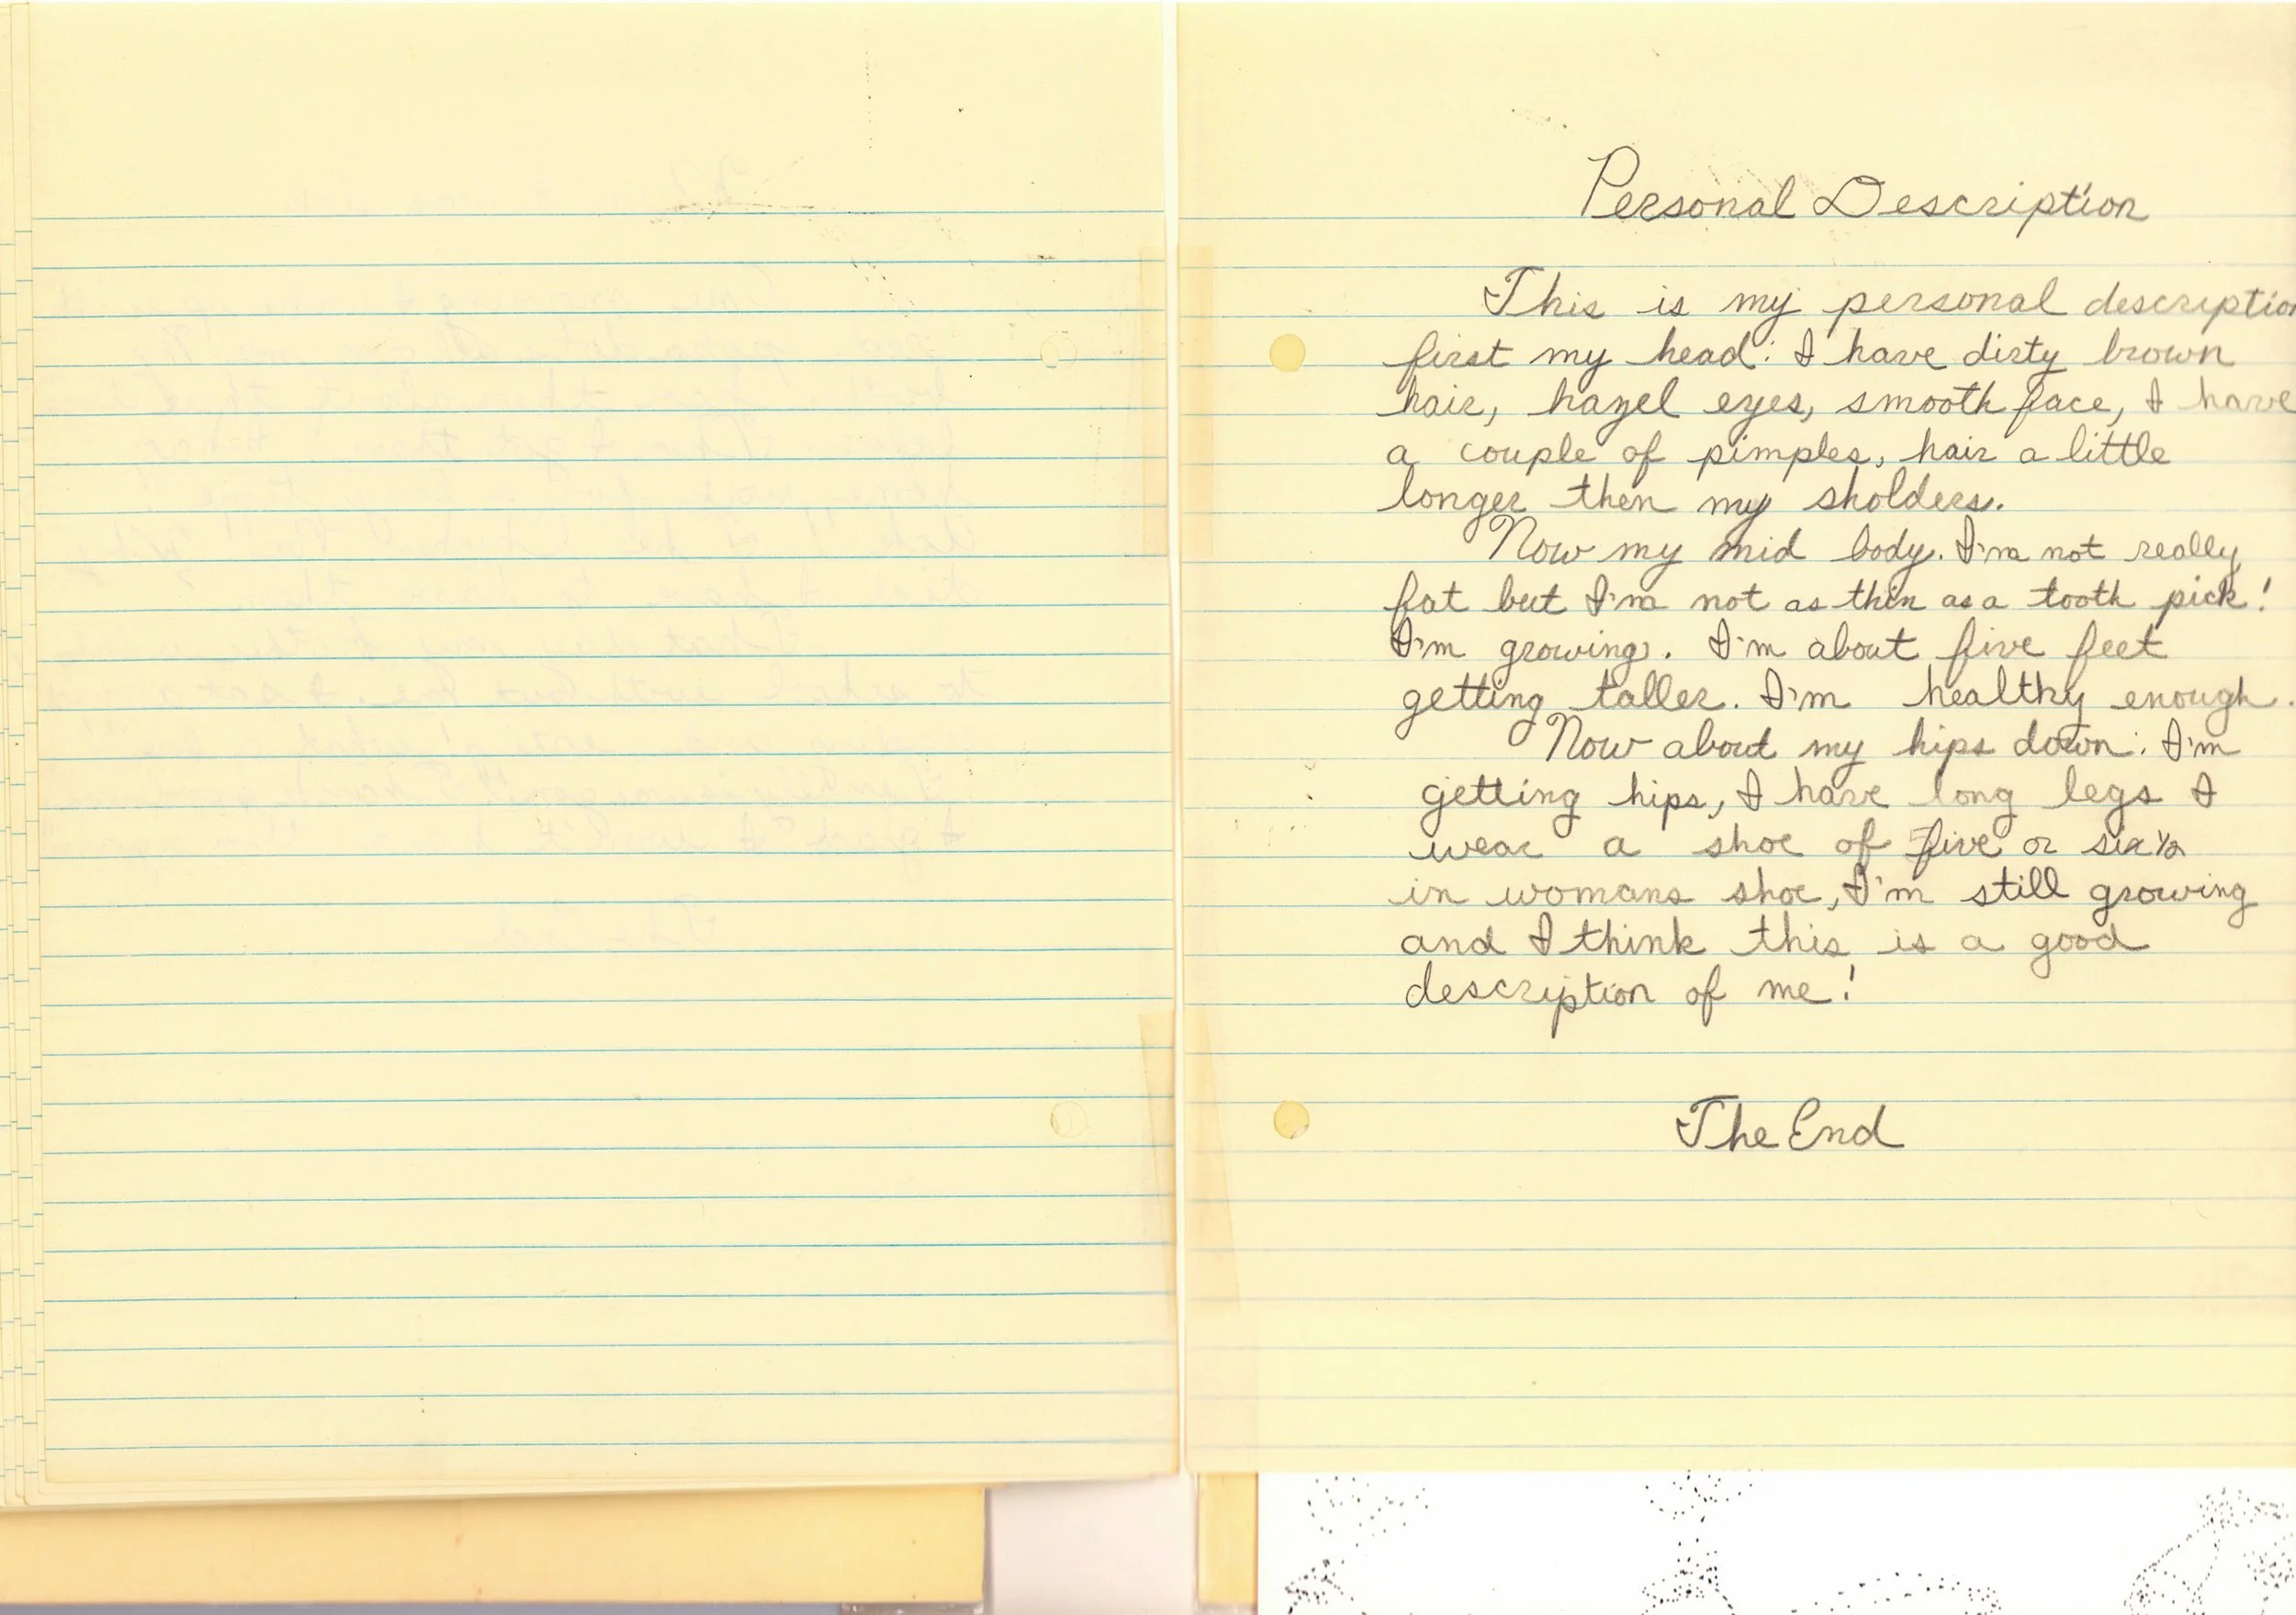 Personal Description
This is my personal description
first my head: I have dirty brown
hair, hazel eyes, smooth face, I have
a couple of pimples, hair a little
longer then my sholders.
Now my mid body. I'm not really
fat but I'm not as thin as a tooth pick!
I'm growing. I'm about five feet
getting taller. I'm healthy enough.
Now about my hips down: I'm
getting hips, I have long legs I
wear a shoe of five or six ½
in womans shoe, I'm still growing
and I think this is a good
description of me!
The End